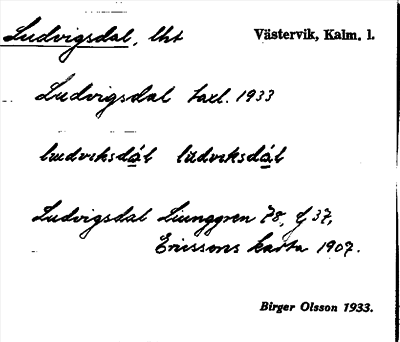 Ludvigsdal, lht Västervik, Kalm. l.
Ludvigsdal taxl. 1933
ludviksdál lüdviksdál
Ludvigsdal Ljunggren 78, G 37,
Ericssons karta 1907.
Birger Olsson 1933.